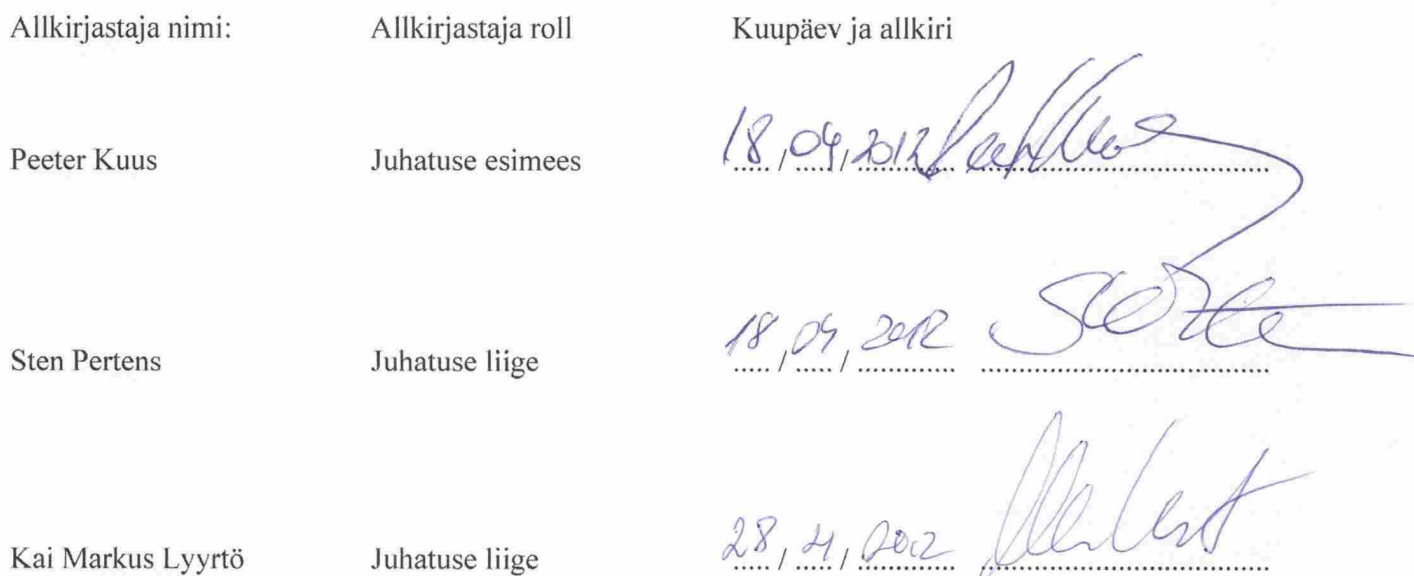 Allkirjastaja nimi: Allkirjastaja roll Kuupäev ja allkiri
Peeter Kuus Juhatuse esimees 18/04/2012
Sten Pertens Juhatuse liige 18/04/2012
Kai Markus Lyyrtö Juhatuse liige 28/4/2012